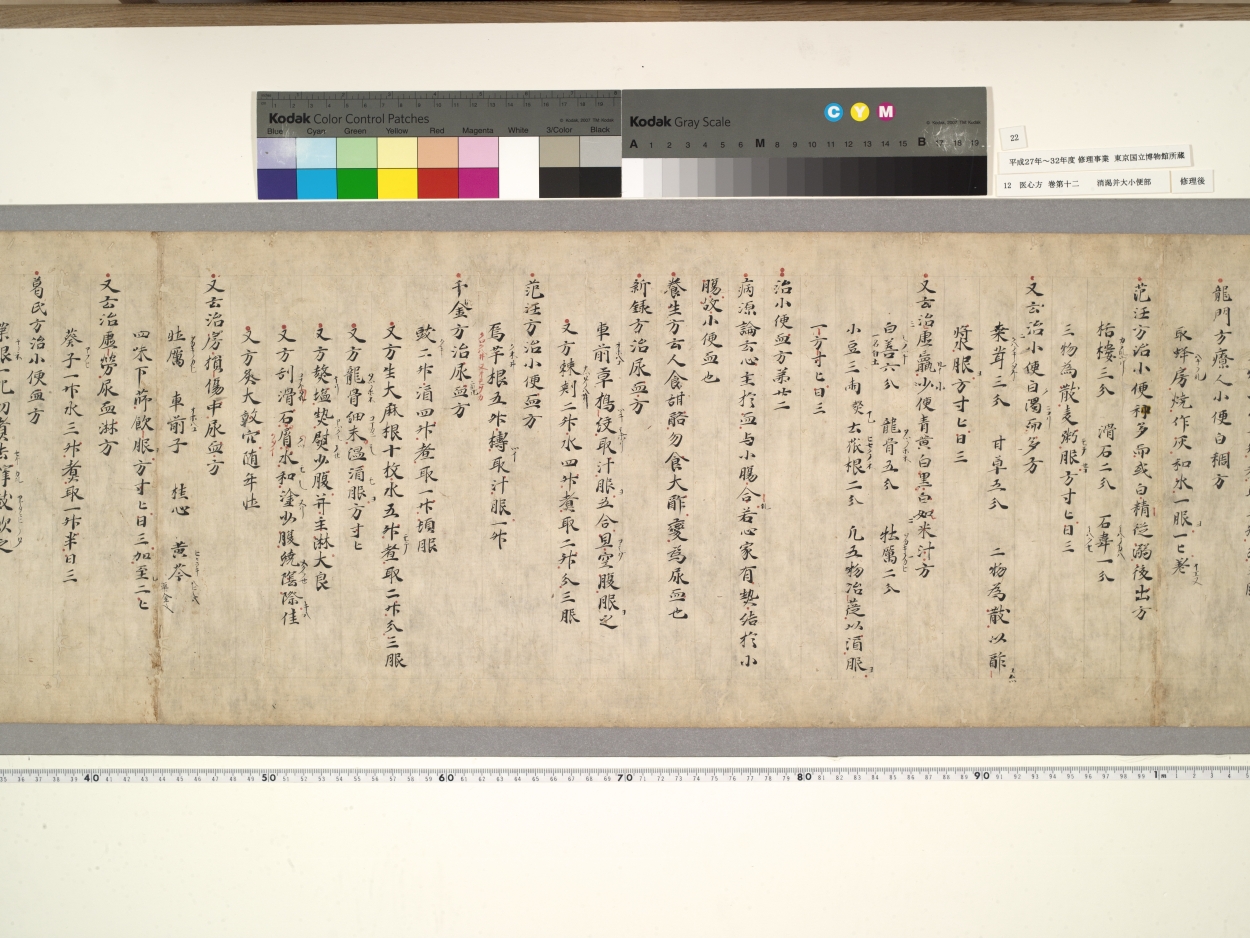 Kodak Color Control Patches
© Kodak, 2007 TM: Kodak
Blue Cyan Green Yellow Red Magenta White 3/Color Black
Kodak Gray Scale
C Y M
© Kodak, 2007 TM: Kodak
A 1 2 3 4 5 6 M 8 9 10 11 12 13 14 15 B 17 18 19
22
平成27年～32年度 修理事業 東京国立博物館所蔵
12 医心方 巻第十二 消渇并大小便部
修理後
龍門方療人小便白稠方
取蜂房燒作灰和水一服一匕
范汪方治小便多而或白精從溺後出方
栝樓三分 滑石二分 石韋一分
三物為散麦粥服方寸匕日三
又云治小便白濁而多方
三分 甘草五分 二物為散以酢
漿服方寸匕日三
又云治虚羸少便青黄白黒白如米汁方
白善六分 龍骨五分 牡厲二分
小豆三両 根二分 凡五物冶篵以酒服
一方寸匕日三
治小便血方第廿二
病源論云心主於血与小腸合若心家有熱結於小
腸故小便血也
養生方云人食甜酪勿食大酢變為尿血也
新録方治尿血方
車前草搗絞取汁服五合旦空腹服之
又方棘刺二升水四升煮取二升分三服
范汪方治小便血方
焉芋根五升擣取汁服一升
千金方治尿血方
豉二升酒四升煮取一升頓服
又方生大麻根十枚水五升煮取二升分三服
又方龍骨細末温酒服方寸匕
又方熬塩熱熨少腹并主淋大良
又方刮滑石屑水和塗少腹繞陰際佳
又方灸大敦穴随年壮
又云治房損傷中尿血方
牡厲 車前子 桂心 黄芩
四味下篩飲服方寸匕日三加至二匕
又云治虚勞尿血淋方
葵子一升水三升煮取一升半日三
葛氏方治小便血方
40 50 60 70 80 90 1m